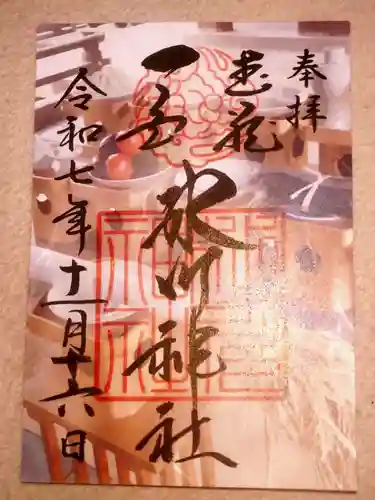 奉拝
武蔵
一宮
氷川神社
令和七年十一月十六日